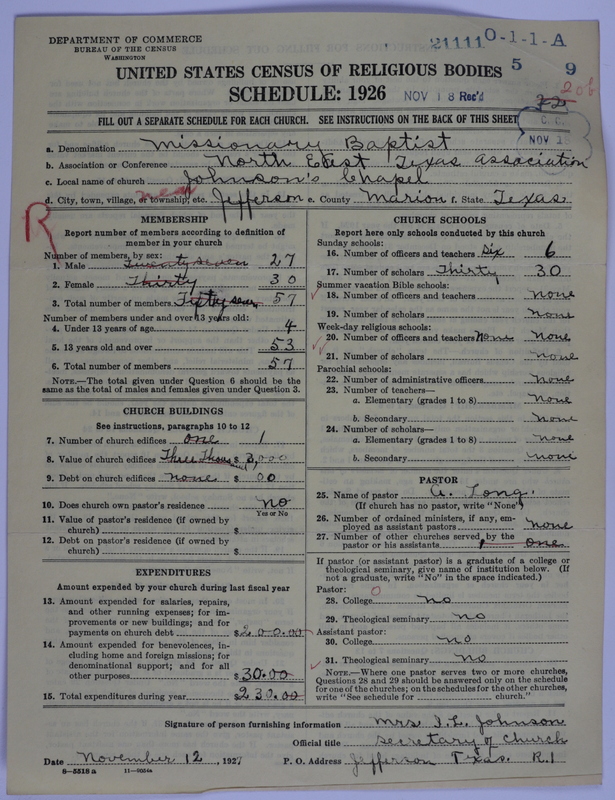 DEPARTMENT OF COMMERCE
BUREAU OF THE CENSUS
WASHINGTON
21111 0-1-1-A
5 9
UNITED STATES CENSUS OF RELIGIOUS BODIES
SCHEDULE: 1926
NOV 18 Rec'd
FILL OUT A SEPARATE SCHEDULE FOR EACH CHURCH. SEE INSTRUCTIONS ON THE BACK OF THIS SHEET
a. Denomination Missionary Baptist
b. Association or Conference North East Texas Association
c. Local name of church Johnson's Chapel
near
d. City, town, village, or township, etc. Jefferson e. County Marion f. State Texas
R
MEMBERSHIP
Report number of members according to definition of member in your church
Number of members, by sex:
1. Male Twenty seven 27
2. Female Thirty 30
3. Total number of members Fifty seven 57
Number of members under and over 13 years old:
4. Under 13 years of age 4
5. 13 years old and over 53
6. Total number of members 57
NOTE.—The total given under Question 6 should be the same as the total of males and females given under Question 3.
CHURCH BUILDINGS
See instructions, paragraphs 10 to 12
7. Number of church edifices one 1
8. Value of church edifices Three Thousand $ 3,000
9. Debt on church edifices none $ 00
10. Does church own pastor's residence No
Yes or No
11. Value of pastor's residence (if owned by church) $
12. Debt on pastor's residence (if owned by church) $
EXPENDITURES
Amount expended by your church during last fiscal year
13. Amount expended for salaries, repairs, and other running expenses; for improvements or new buildings; and for payments on church debt $200.00
14. Amount expended for benevolences, including home and foreign missions; for denominational support; and for all other purposes $30.00
15. Total expenditures during year $230.00
CHURCH SCHOOLS
Report here only schools conducted by this church
Sunday schools:
16. Number of officers and teachers Six 6
17. Number of scholars Thirty 30
Summer vacation Bible schools:
18. Number of officers and teachers none
19. Number of scholars none
Week-day religious schools:
20. Number of officers and teachers None None
21. Number of scholars none
Parochial schools:
22. Number of administrative officers None
23. Number of teachers—
a. Elementary (grades 1 to 8) None
b. Secondary None
24. Number of scholars—
a. Elementary (grades 1 to 8) none
b. Secondary none
PASTOR
25. Name of pastor A. Tong.
(If church has no pastor, write "None")
26. Number of ordained ministers, if any, employed as assistant pastors none
27. Number of other churches served by the pastor or his assistants 1 one
If pastor (or assistant pastor) is a graduate of a college or theological seminary, give name of institution below. (If not a graduate, write "No" in the space indicated.)
Pastor:
28. College No
29. Theological seminary No
Assistant pastor:
30. College No
31. Theological seminary No
NOTE.—Where one pastor serves two or more churches, Questions 28 and 29 should be answered only on the schedule for one of the churches; on the schedules for the other churches, write "See schedule for church."
Signature of person furnishing information Mrs. I. L. Johnson
Official title Secretary of Church
Date November 12, 1927 P. O. Address Jefferson Texas. R.1
8—5518a 11—9054a